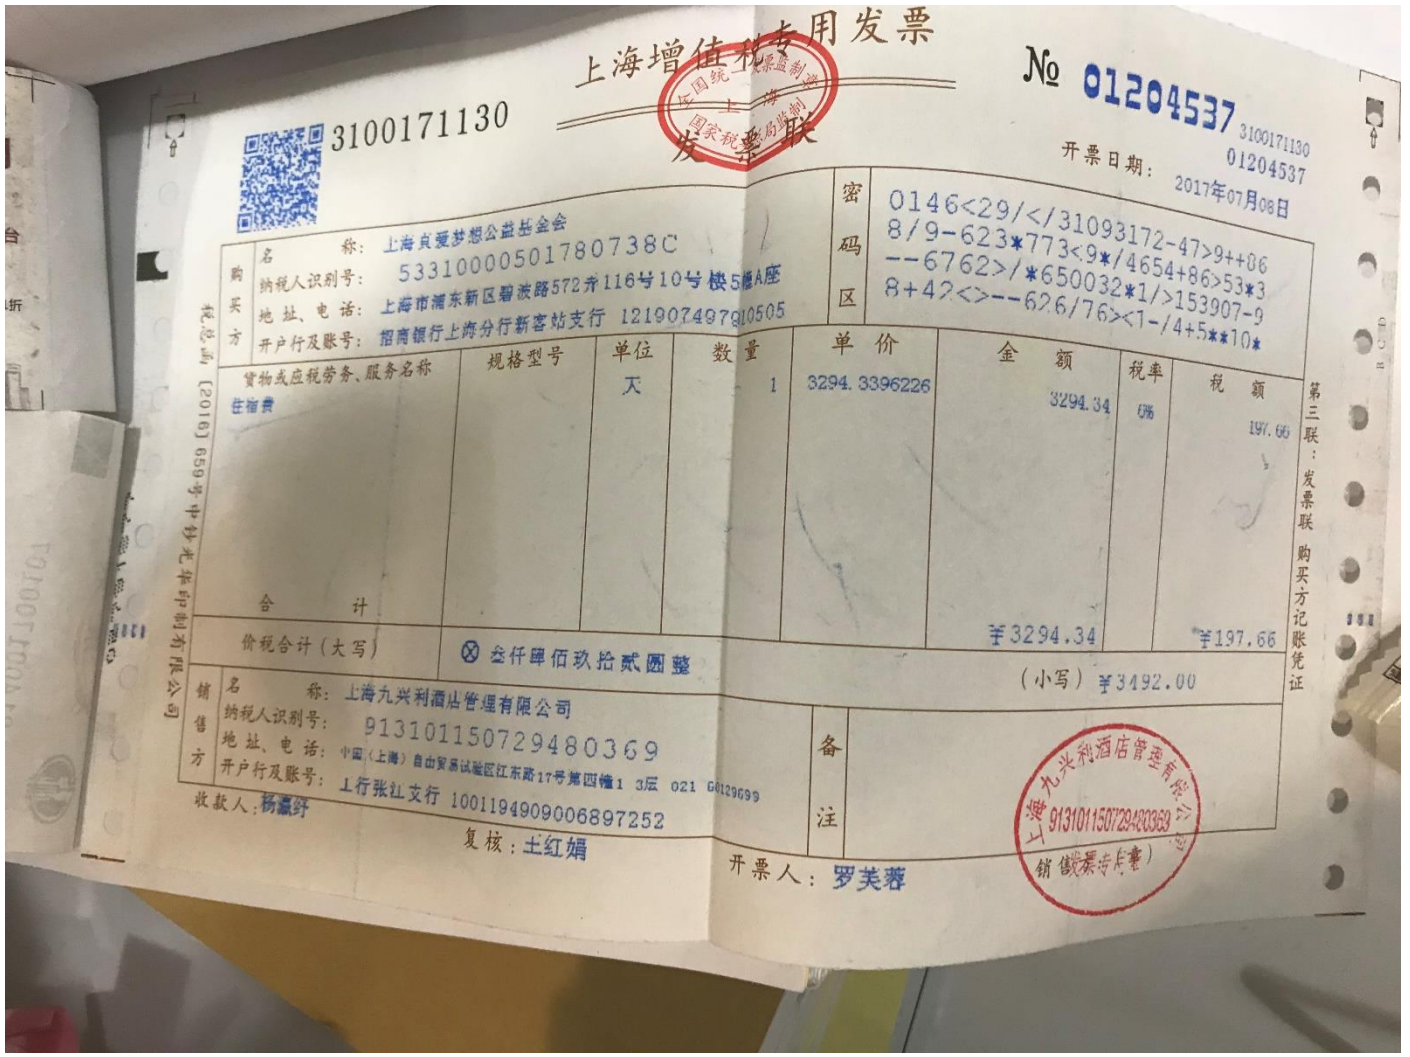 上海增值税专用发票
发票联
全国统一发票监制章
上海
国家税务总局监制
3100171130
№ 01204537
3100171130
01204537
开票日期: 2017年07月08日
购买方
名称: 上海真爱梦想公益基金会
纳税人识别号: 53310000501780738C
地址、电话: 上海市浦东新区碧波路572弄116号10号楼5幢A座
开户行及账号: 招商银行上海分行新客站支行 121907497910505
密码区
0146<29/</31093172-47>9++86
8/9-623*773<9*/4654+86>53*3
--6762>/*650032*1/>153907-9
8+42<>--626/76><1-/4+5**10*
货物或应税劳务、服务名称 规格型号 单位 数量 单价 金额 税率 税额
住宿费 天 1 3294.3396226 3294.34 6% 197.66
合计 ¥3294.34 ¥197.66
价税合计(大写) ⊗叁仟肆佰玖拾贰圆整 (小写) ¥3492.00
销售方
名称: 上海九兴利酒店管理有限公司
纳税人识别号: 913101150729480369
地址、电话: 中国(上海)自由贸易试验区江东路17号第四幢1 3层 021
开户行及账号: 工行张江支行 1001194909006897252
备注
收款人: 杨瀛纾
复核: 王红娟
开票人: 罗芙蓉
上海九兴利酒店管理有限公司
913101150729480369
发票专用章
销售方:(章)
税总函〔2016〕659号中钞光华印制有限公司
第三联:发票联 购买方记账凭证